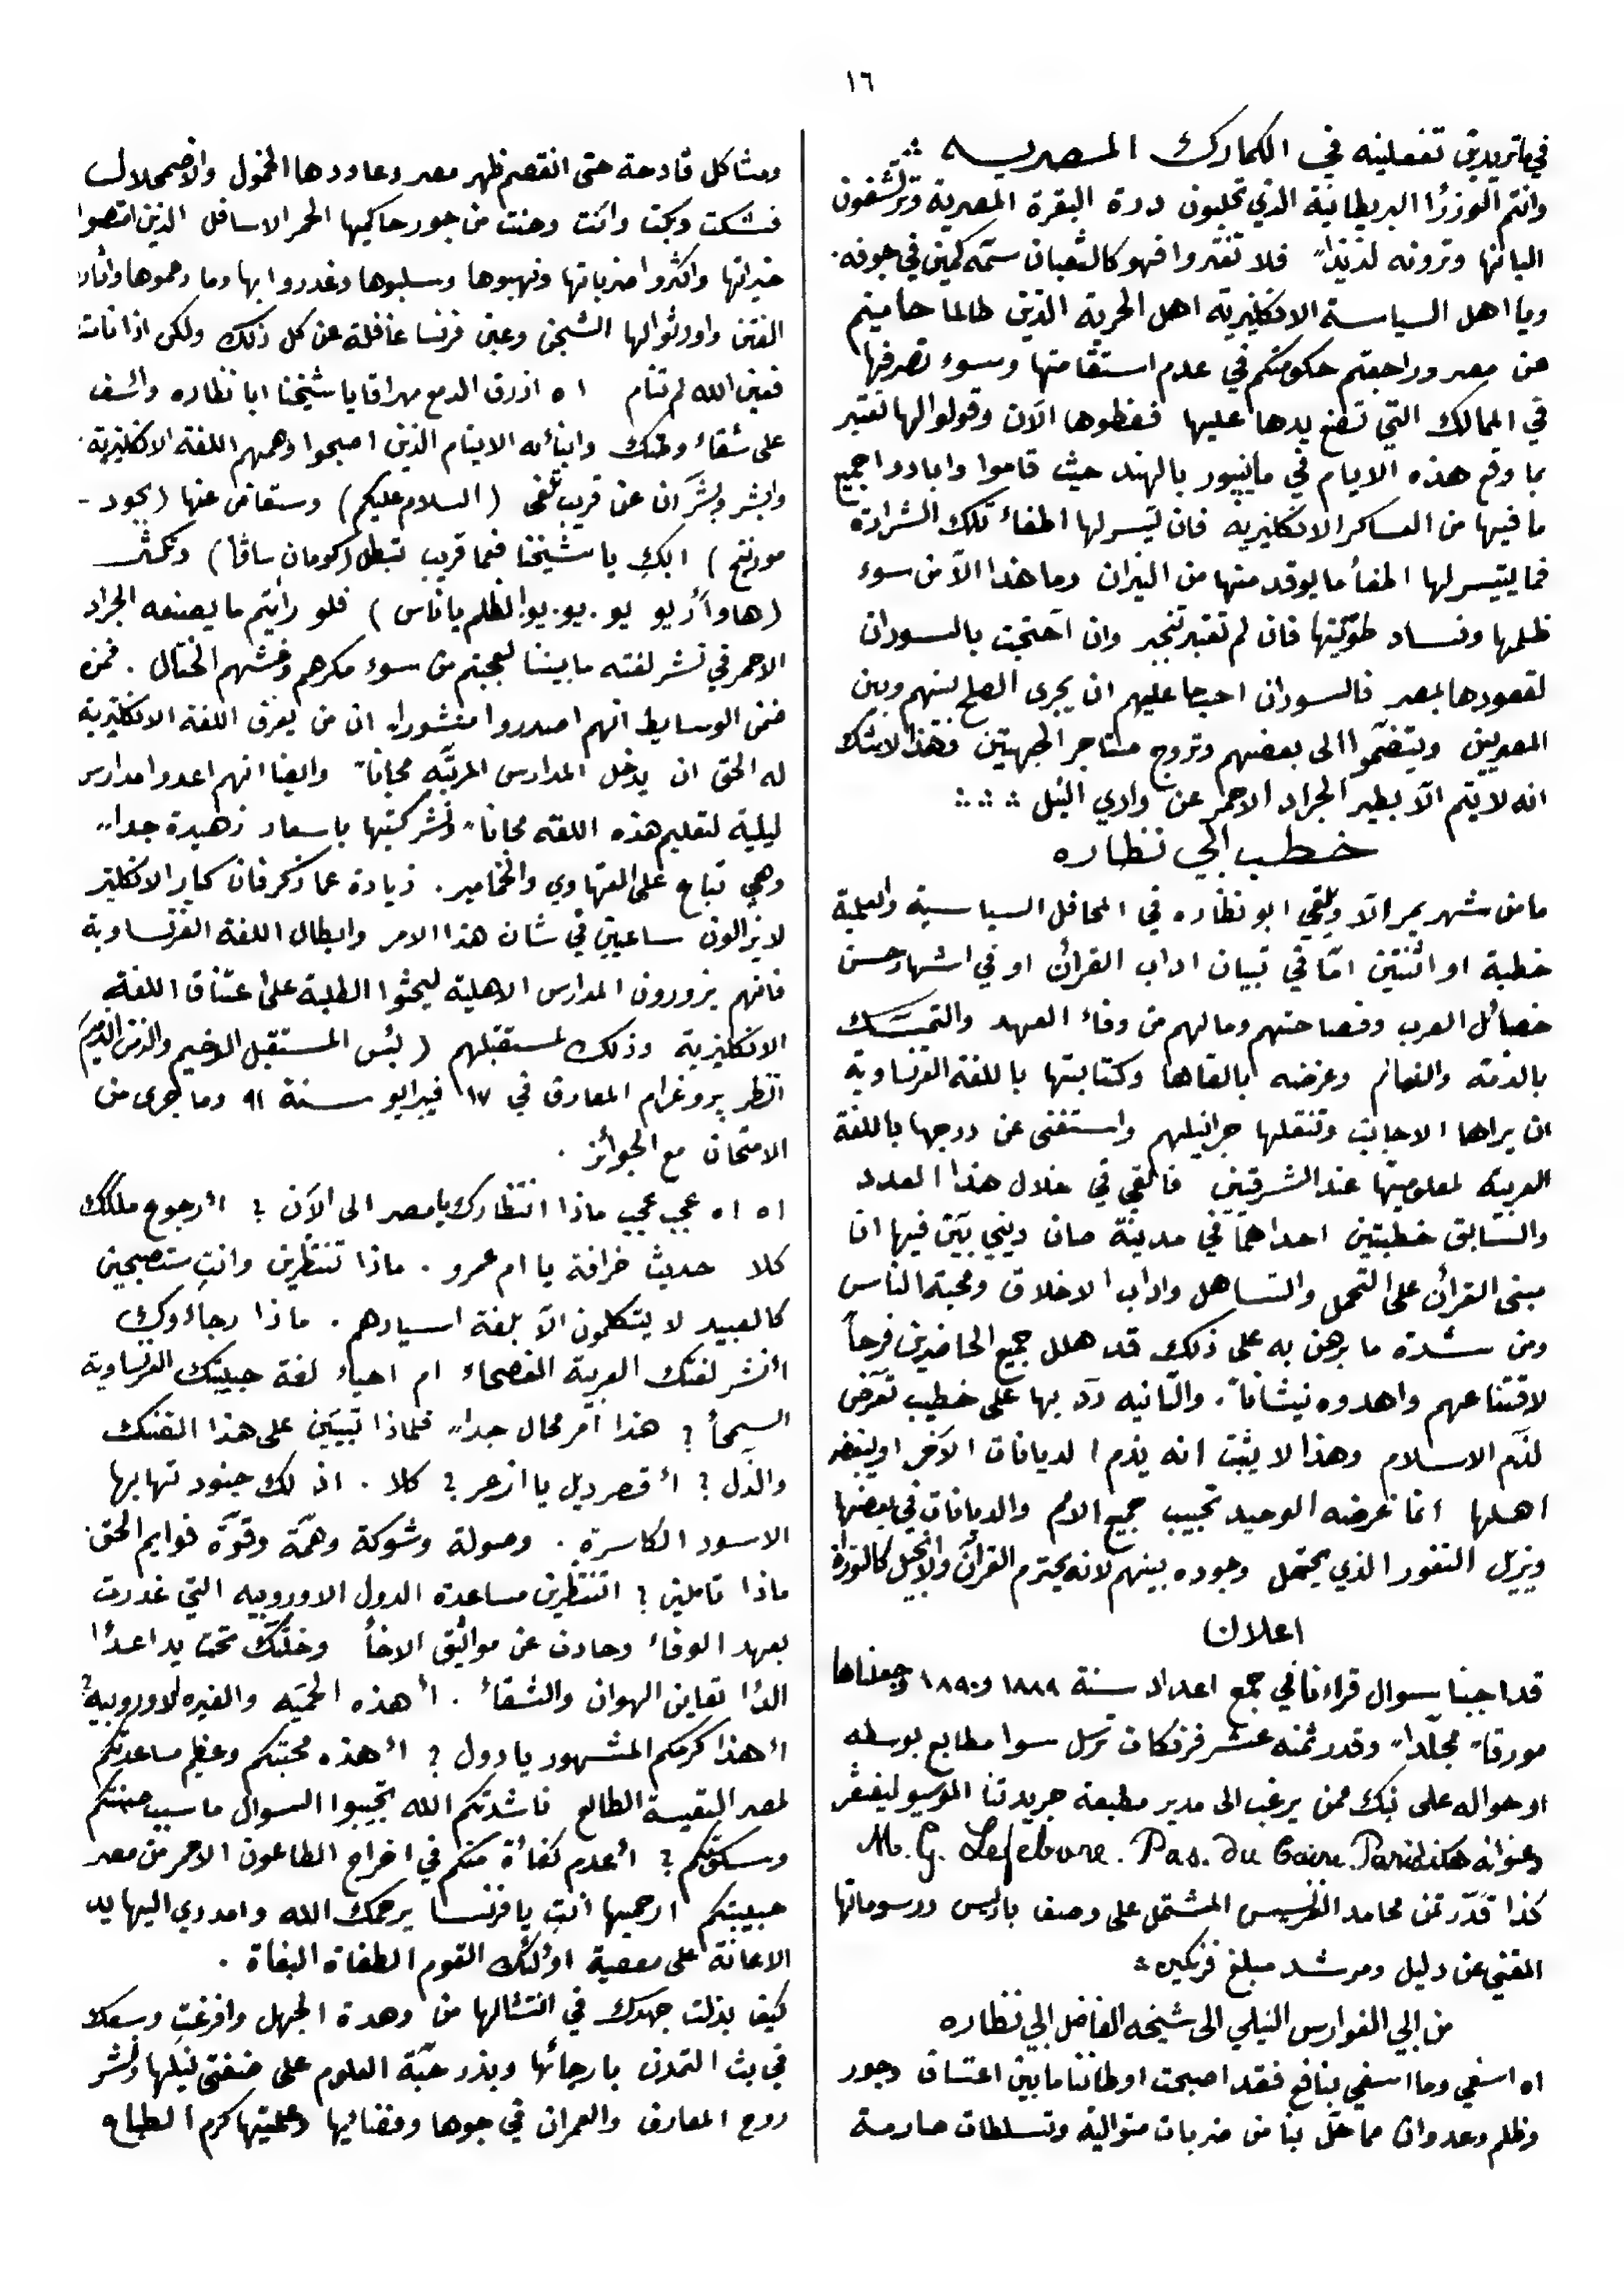 ١٦
في ما تريدين تفعلينه في الكمارك المصريه
وانتم الوزرا البريطانية الذي تحلبون درة البقرة المصرية وترتشفون
البانها وترونه لذيذاً فلا تغتروا فهو كالثعبان سمّه كمين في جوفه.
ويا اهل السياسة الانكليزيه اهل الحرية الذين طالما حاميتم
عن مصر وراجعتم حكومتكم في عدم استقامتها وسوء تصرفها
في الممالك التي تضع يدها عليها فعظوها الآن وقولوا لها تعتبر
بما وقع هذه الايام في مانيپور بالهند حيث قاموا وابادوا جميع
ما فيها من العساكر الانكليزيه فان تيسر لها اطفاء تلك الشرارة
فما يتيسر لها اطفأ ما يوقد منها من النيران وما هذا الاّ من سوء
ظلمها وفساد طويّتها فان لم تعتبر تنجبر وان احتجت بالسودان
لقعودها بمصر فالسودان احب ما عليهم ان يجرى الصلح بينهم وبين
المصريين وينضمّوا الى بعضهم وتروج متاجر الجهتين وهذا لا شك
انه لا يتم الاّ بطير الجراد الاحمر عن وادي النيل
خطب ابي نظاره
ما من شهر يمر الاّ ويلقي ابو نظاره في المحافل السياسية والعلمية
خطبة او اثنتين امّا في تبيان اداب القرآن او في اشهار حسن
خصائل العرب وفصاحتهم ومالهم من وفاء العهد والتمسّك
بالذمّه والنعائم وغرضه بالقاها وكتابتها باللغة الفرنساوية
ان يراها الاجانب وتنقلها جرانيلهم واستغنى عن درجها باللغة
العربيّه لمعلوميتها عند الشرقيين فالقي في خلال هذا العدد
والسابق خطبتين احداهما في مدينة صان ديني بيّن فيها ان
مبنى القرآن على التحمل والتساهل واداب الاخلاق ومحبة الناس
ومن شدة ما برهن به على ذلك قد هلل جميع الحاضرين فرحاً
لاقتناعهم واهدوه نيشاناً. والثانيه ردّ بها على خطيب تعرّض
لذّم الاسلام وهذا لا يثبت انه يذم الديانات الآخر او يبغض
اهلها انما غرضه الوحيد تحبيب جميع الامم والديانات في بعضها
ويزيل النفور الذي يحتمل وجوده بينهم لانه يحترم القرآن والانجيل كالتوراة
اعلان
قد اجبنا سوال قراءنا في جمع اعداد سنة ١٨٨٩ و١٨٩٠ وجعلناها
مورقاً مجلّداً وقدر ثمنه عشر فرنكات ترسل سوا مطابع بوسطه
او حواله على بنك ممن يرغب الى مدير مطبعة جريدتنا الموسيو ليفيڤر
وعنوانه هكذا M. G. Lefebvre. Pas. du Caire. Paris
كذا قدّر ثمن محامد الفرنسيس المشتمل على وصف باريس ورسوماتها
المغني عن دليل ومرشد مبلغ فرنكين
من ابي الفوارس النيلي الى شيخه الفاضل ابي نظاره
اه اسفي وما اسفي بنافع فقد اصبحت اوطاننا ما بين اعتساف وجور
وظلم وعدوان مما حلّ بنا من ضربات متوالية وتسلطات صارمة
ومشاكل قادحة حتى انقصم ظهر مصر وعاودها الخمول والاضمحلال
فشكت وبكت وانّت وحنت من جور حاكميها الحمر الاسافل الذين امتصوا
خيراتها واكثروا ضرباتها ونهبوها وسلبوها وغدروا بها وما رحموها واثاروا
الفتن واورثوا لها الشجن وعين فرنسا غافلة عن كل ذلك ولكن اذا نامت
فعين الله لم تنام اه اذرق الدمع مهراقا يا شيخنا ابا نظاره وائسف
على شقاء وطنك وابنائه الايتام الذين اصبحوا وهمهم اللغة الانكليزية.
وابشر وبشّر ان عن قريب تُلغى (السلام عليكم) وستعاض عنها (بجود -
مورننج) ابك يا شيخنا فعما قريب تبطل (كومان ساڤا) وتكثر
(هاو آر يو يو. يو. يو! لظلم يا ناس) فلو رأيتم ما يصنعه الجراد
الاحمر في نشر لغته ما بيننا لعجبتم من سوء مكرهم وغشهم الختال. فمن
ضمن الوسايط انهم اصدروا منشورا ان من يعرف اللغة الانكليزية
له الحق ان يدخل المدارس المرتبه مجاناً وايضا انهم اعدوا مدارس
ليلية لتعليم هذه اللغه مجاناً ونشر كتبها باسعار زهيدة جداً
وهي تباع على القهاوي والخمامير. زيادة عما ذكر فان كبار الانكليز
لا يزالون ساعيين في شان هذا الامر وابطال اللغة الفرنساوية
فانهم يزورون المدارس الاهلية ليحثوا الطلبة على اعتناق اللغة
الانكليزية وذلك لمستقبلهم (بئس المستقبل الوخيم والزمن الذميم
انظر پروغرام المعارف في ١٧ فبرايو سنة ٩١ وما جرى من
الامتحان مع الجوائز.
اه اه عجب عجب ماذا انتظارك يا مصر الى الآن ؟ أرجوع ملكك
كلا حديث خرافة يا ام عمرو. ماذا تنتظرين وانت ستصبحين
كالعبيد لا يتكلمون الاّ بلغة اسيادهم. ماذا رجاؤك
أنشر لغتك العربية الفصحاء ام احياء لغة حبيبتك الفرنساوية
السمحأ ؟ هذا امر محال جداً فلماذا تبيتين على هذا الضنك
والذّل ؟ أقصر ذيل يا ازعر ؟ كلا. اذ لك جنود تهابها
الاسود الكاسرة. وصولة وشوكة وهمّة وقوّة فوايم الحق
ماذا تاملين ؟ اتنتظرين مساعدة الدول الاوروبيه التي غدرت
بعهد الوفاء وحادت عن مواثيق الاخأ وخلّتك تحت يد اعداا
الدّا تعاين الهوان والشقاء. أهذه الحميّه والغيره الاوروبية؟
أهذا كرمكم المشهور يا دول ؟ أهذه محبتكم وعظيم مساعدتكم
لمصر التعيسة الطالع ناشدتكم الله تجيبوا السوال ما سبب صمتكم
وسكوتكم ؟ أعدم كفأة منكم في اخراج الطاعون الاحمر من مصر
حبيبتكم ارحميها انتِ يا فرنسا يرحمك الله وامددي اليها يد
الاعانة على معصية اولئك القوم الطغاة البغاة.
كيف بذلت جهدك في انتشالها من وهدة الجهل وافرغتِ وسعك
في بث التمدن بارجائها وبذر حبّة العلوم على ضفتي نيلها ونشر
روح المعارف والعمران في جوها وفضائها وعلمتها كرم الطباع